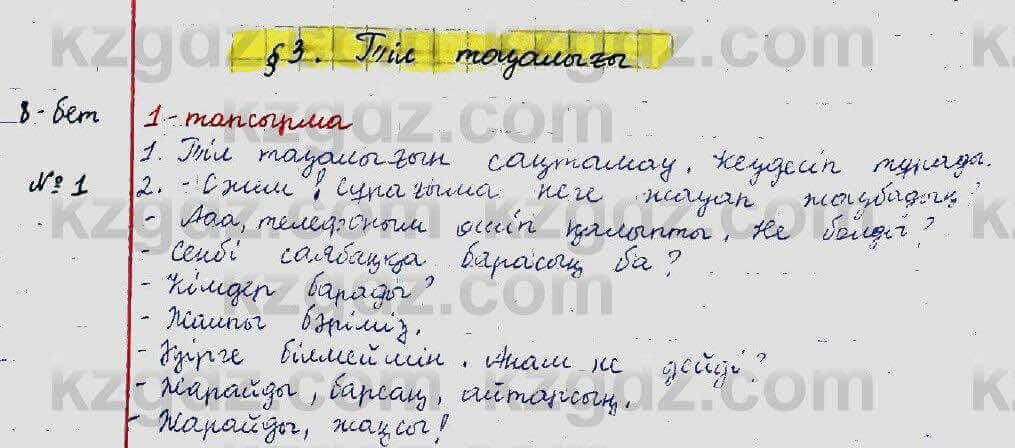 §3. Тіл тазалығы
8-бет 1-тапсырма
1. Тіл тазалығын сақтамау, кездесіп тұрады.
№1 2. - Сәлим! сұрағыма неге жауап жазбадың?
- Ааа, телефоным өшіп қалыпты, не болды?
- Сенбі саябаққа барасың ба?
- Кімдер барады?
- Жалпы бәріміз.
- Әзірге білмеймін. Анам не дейді?
- Жарайды, барсаң, айтарсың.
- Жарайды, жақсы!